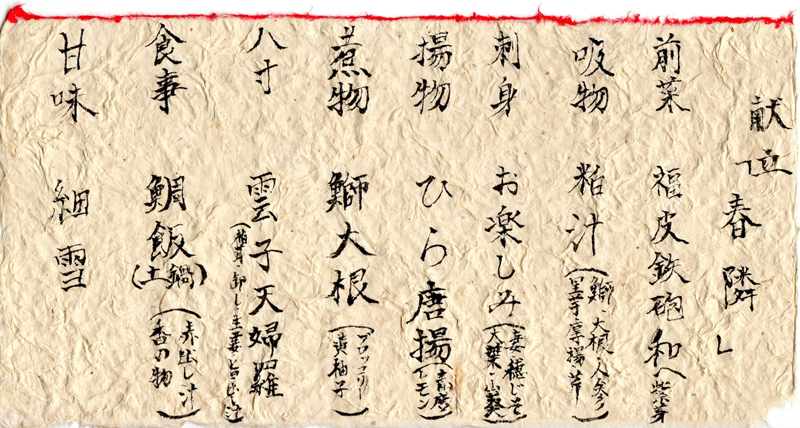 献立 春隣し
前菜 福皮鉄砲和へ 紫芽
吸物 粕汁(鰤、大根、人参、 芹)
刺身 お楽しみ(妻、穂じそ 大葉、山葵)
揚物 ひら唐揚(青唐 レモン)
煮物 鰤大根(ブロッコリー 黄柚子)
八寸 雲子天婦羅
食事 鯛飯(土鍋)(赤出し汁 香の物)
甘味 細雪